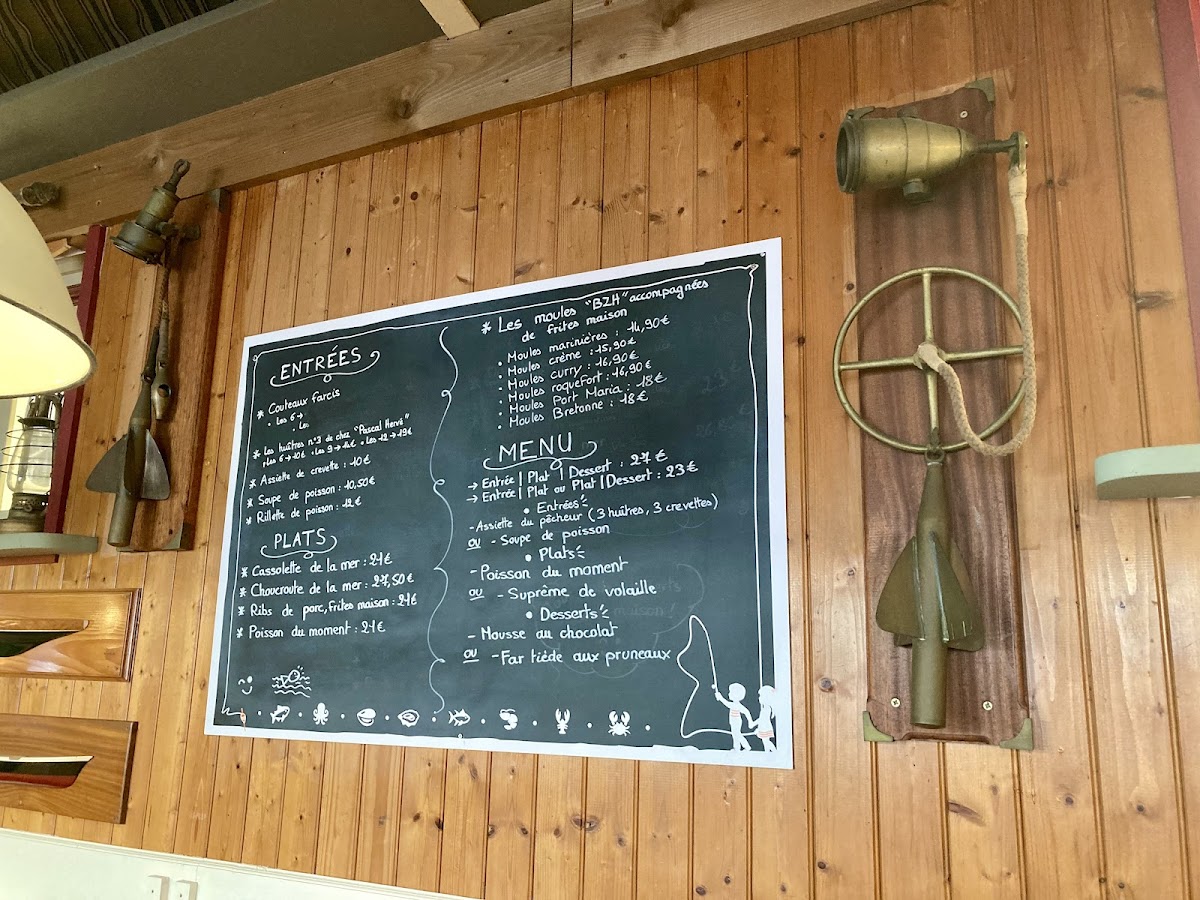 ENTRÉES
* Couteaux farcis
• Les 6 →
• Les
* Les huîtres n°3 de chez "Pascal Hervé"
• Les 6 → 10€ • Les 9 → 14€ • Les 12 → 19€
* Assiette de crevette : 10€
* Soupe de poisson : 10,50€
* Rillette de poisson : 12€
PLATS
* Cassolette de la mer : 21€
* Choucroute de la mer : 27,50€
* Ribs de porc, frites maison : 21€
* Poisson du moment : 21€
* Les moules "BZH" accompagnées
de frites maison
• Moules marinières : 14,90€
• Moules crème : 15,90€
• Moules curry : 16,90€
• Moules roquefort : 16,90€
• Moules Port Maria : 18€
• Moules Bretonne : 18€
MENU
→ Entrée | Plat | Dessert : 27€
→ Entrée | Plat ou Plat | Dessert : 23€
• Entrées
- Assiette du pêcheur (3 huîtres, 3 crevettes)
ou - Soupe de poisson
• Plats
- Poisson du moment
ou - Suprême de volaille
• Desserts
- Mousse au chocolat
ou - Far tiède aux pruneaux